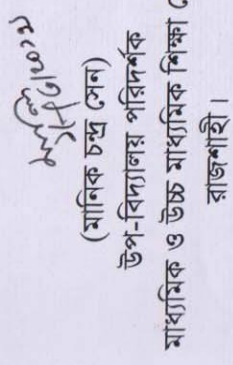 (মানিক চন্দ্র সেন)
উপ-বিদ্যালয় পরিদর্শক
মাধ্যমিক ও উচ্চ মাধ্যমিক শিক্ষা
রাজশাহী।